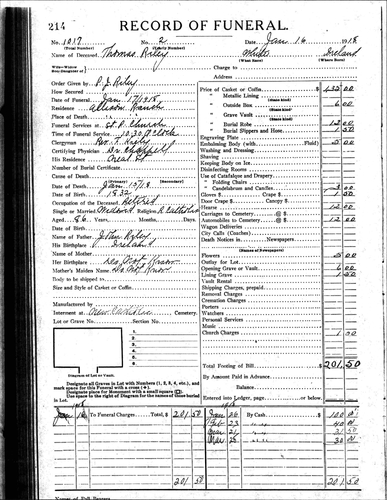 214
RECORD OF FUNERAL.
No. 1017 No. 2 Date Jan 16 1918
(Total Number) (Yearly Number)
Name of Deceased Thomas Riley White Ireland
(What Race) (Where Born)
Charge to
Address
Order Given by P. J. Riley
How Secured
Date of Funeral Jan 17 1918
Residence
Place of Death
Funeral Services at St P. Church
Time of Funeral Service 10:30 O'Clock
Clergyman Rev.
Certifying Physician Dr.
His Residence
Number of Burial Certificate
Cause of Death
(Secondary)
Date of Death Jan 15/18
Date of Birth 1832
Occupation of the Deceased Retired
Single or Married Religion R. Catholic
Aged 86 Years, Months, Days.
Date of Birth
Name of Father John Riley
His Birthplace Ireland
Name of Mother
Her Birthplace Do Not Know
Mother's Maiden Name Do Not Know
Body to be shipped to
Size and Style of Casket or Coffin
Manufactured by
Interment at Cemetery.
Lot or Grave No. Section No.
1
2
3
4
5
6
Diagram of Lot or Vault.
Designate all Graves in Lot with Numbers (1, 2, 3, 4, etc.), and
mark space for this Funeral with a cross (+).
Designate place for Monument with a small square (□).
Use space to right of Diagram for names of those buried
in Lot.
Price of Casket or Coffin 135 00
" Metallic Lining
(State Kind)
" Outside Box 6 00
(State Kind)
" Grave Vault
(State Kind)
" Burial Robe 12 00
" Burial Slippers and Hose 1 50
Engraving Plate
Embalming Body (with Fluid) 5 00
Washing and Dressing
Shaving
Keeping Body on Ice
Disinfecting Rooms
Use of Catafalque and Drapery
" Folding Chairs
" Candelabrum and Candles 3 00
Gloves $ Crape $
Hearse 12 00
Carriages to Cemetery @ $
Automobiles to Cemetery @ $ 12 00
Wagon Deliveries
City Calls (Coaches)
Death Notices in Newspapers
(Names of Newspapers)
Flowers 5 00
Outlay for Lot
Opening Grave or Vault 6 00
Lining Grave 1 50
Vault Rental
Shipping Charges, prepaid
Removal Charges
Cremation Charges
Porters
Watchers
Personal Services
Music
Church Charges
Total Footing of Bill $ 201.50
By Amount Paid in Advance
Balance
Entered into Ledger, page or below
Jan 16 To Funeral Charges, Total $ 201 50
Jan 26 By Cash $ 100
Feb 23 " " 40
Mar 21 " " 31 50
Mar 25 " " 30
201 50
201 50